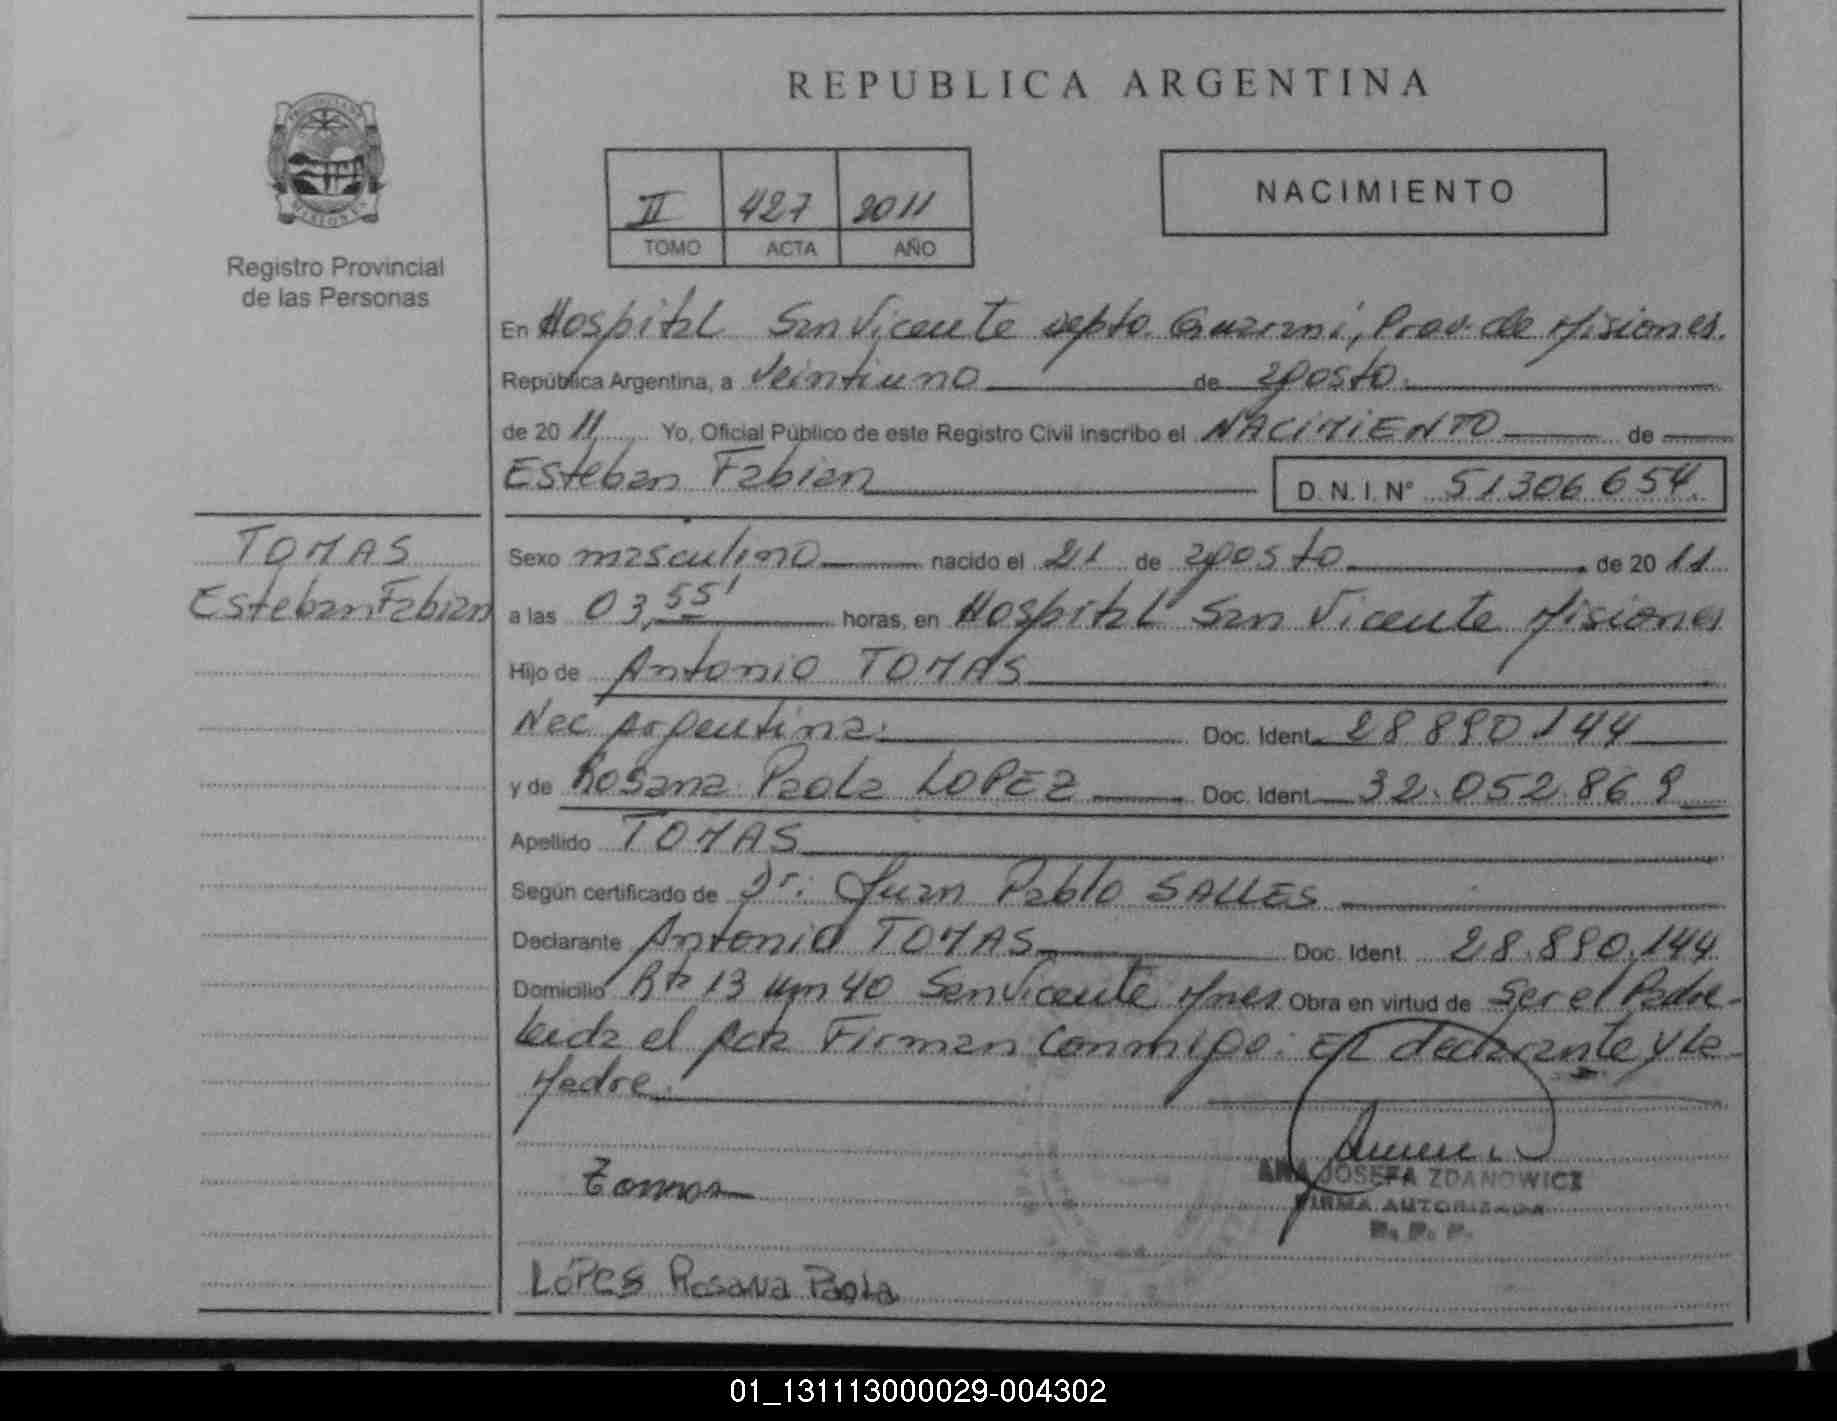 REPUBLICA ARGENTINA
II 427 2011
TOMO ACTA AÑO
NACIMIENTO
Registro Provincial
de las Personas
En Hospital San Vicente depto. Guarani, Prov. de Misiones.
República Argentina, a Veintiuno de agosto.
de 2011 Yo, Oficial Público de este Registro Civil inscribo el NACIMIENTO de
Esteban Fabian D.N.I. N° 51306654.
TOMAS
Esteban Fabian
Sexo masculino nacido el 21 de agosto de 2011
a las 03,55' horas, en Hospital San Vicente Misiones
Hijo de Antonio TOMAS
Nac Argentina. Doc. Ident. 28890144
y de Rosana Paola LOPEZ Doc. Ident. 32.052.869
Apellido TOMAS
Según certificado de Dr. Juan Pablo SALLES
Declarante Antonio TOMAS Doc. Ident. 28.890.144
Domicilio Rta 13 Km 40 San Vicente Mnes. Obra en virtud de Ser el Padre-
Leida el Acta Firman Conmigo. El declarante y la-
Madre.
ANA JOSEFA ZDANOWICZ
FIRMA AUTORIZADA
R. P. P.
Tomas
LOPES Rosana Paola
01_131113000029-004302